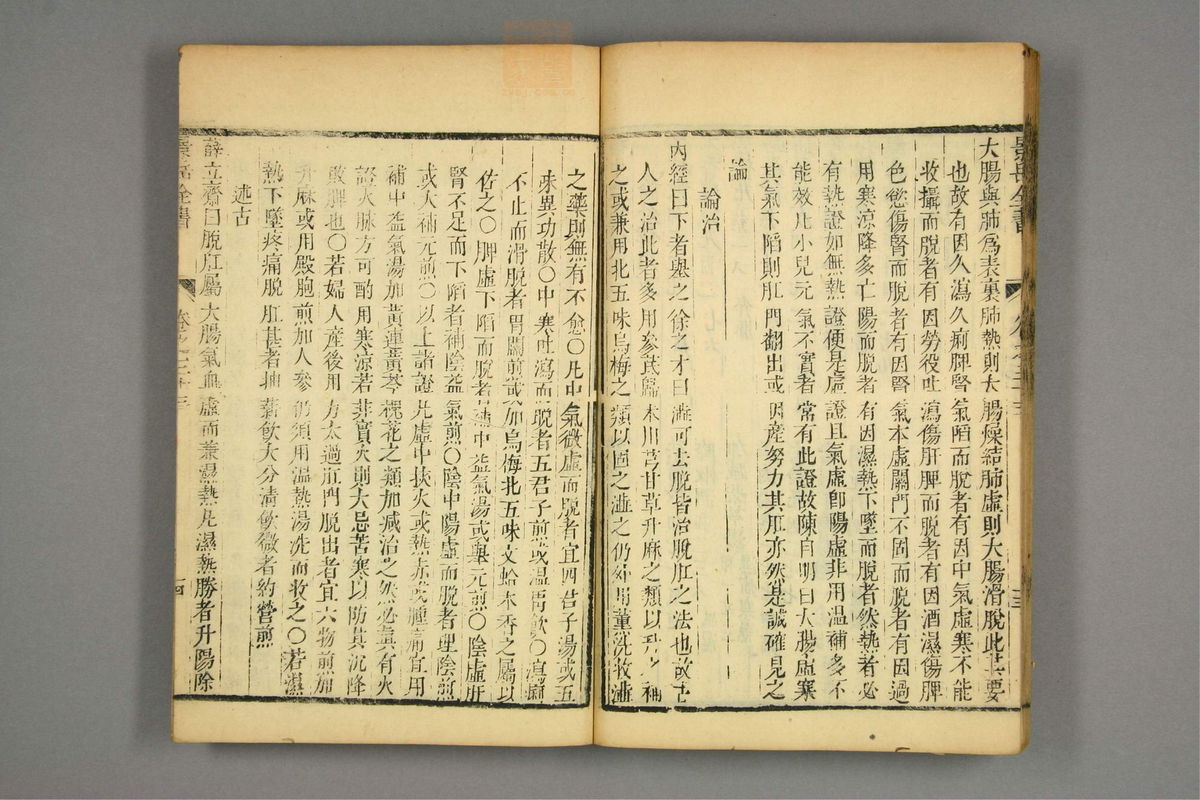 大腸與肺爲表裏肺熱則大腸燥結肺虛則大腸滑脫此其要
也故有因久瀉久痢脾腎氣陷而脫者有因中氣虛寒不能
收攝而脫者有因勞役吐瀉傷肝脾而脫者有因酒濕傷脾
色慾傷腎而脫者有因腎氣本虛關門不固而脫者有因過
用寒涼降多亡陽而脫者有因濕熱下墜而脫者然熱者必
有熱證如無熱證便是虛證且氣虛卽陽虛非用温補多不
能效凡小兒元氣不實者常有此證故陳自明曰大腸虛寒
其氣下陷則肛門翻出或因產努力其肛亦然是誠確見之
論
論治
內經曰下者舉之徐之才曰澁可去脫皆治脫肛之法也故古
人之治此者多用參芪歸术川芎甘草升麻之類以升之補
之或兼用北五味烏梅之類以固之澁之仍外用薰洗收澁
之藥則無有不愈〇凡中氣微虛而脫者宜四君子湯或五
味異功散〇中寒吐瀉而脫者五君子煎或温胃飲〇瀉痢
不止而滑脫者胃關煎或加烏梅北五味文蛤木香之屬以
佐之〇脾虛下陷而脫者補中益氣湯或舉元煎〇陰虛肝
腎不足而下陷者補陰益氣煎〇陰中陽虛而脫者理陰煎
或大補元煎〇以上諸證凡虛中挾火或熱赤或腫痛宜用
補中益氣湯加黃連黃芩槐花之類加減治之然必真有火
證火脉方可酌用寒涼若非實火則大忌苦寒以防其沉降
敗脾也〇若婦人產後用力太過肛門脫出者宜六物煎加
升麻或用殿胞煎加人參仍須用温熱湯洗而收之〇若濕
熱下墜疼痛脫肛甚者抽薪飲大分清飲微者約營煎
述古
薛立齋曰脫肛屬大腸氣血虛而兼濕熱凡濕熱勝者升陽除
景岳全書